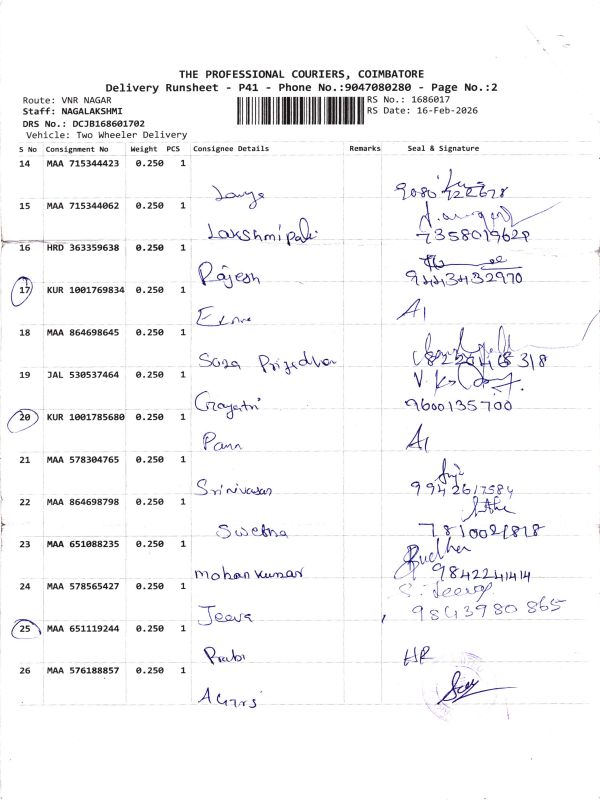 THE PROFESSIONAL COURIERS, COIMBATORE
Delivery Runsheet - P41 - Phone No.:9047080280 - Page No.:2
Route: VNR NAGAR RS No.: 1686017
Staff: NAGALAKSHMI RS Date: 16-Feb-2026
DRS No.: DCJB168601702
Vehicle: Two Wheeler Delivery
S No Consignment No Weight PCS Consignee Details Remarks Seal & Signature
14 MAA 715344423 0.250 1
15 MAA 715344062 0.250 1
Lakshmipati 7358019629
16 HRD 363359638 0.250 1
Rajesh 9443432970
17 KUR 1001769834 0.250 1
A1
18 MAA 864698645 0.250 1
19 JAL 530537464 0.250 1
Gayatri 9600135700
20 KUR 1001785680 0.250 1
A1
21 MAA 578304765 0.250 1
Srinivasan 9942617584
22 MAA 864698798 0.250 1
Swetha
23 MAA 651088235 0.250 1
Sudha
mohan kumar 9842241414
24 MAA 578565427 0.250 1
S. Jeeva
Jeeva 9843980865
25 MAA 651119244 0.250 1
Prabi HR
26 MAA 576188857 0.250 1